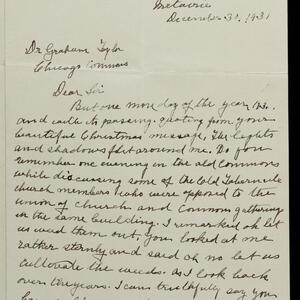 Metairie
December 30, 1931
Dr Graham Taylor
Chicago Commons
Dear Sir
But one more day of the year
and with its passing. quoting from your
beautiful Christmas message, The lights
and shadows flit around me. Do you
remember one evening in the old Commons
while discussing some of the Old Tabernacle
church members who were opposed to the
union of church and Commons gathering
in the same building. I remarked oh let
us weed them out, you looked at me
rather sternly and said oh no let us
cultivate the weeds. As I look back
over the years. I can truthfully say you